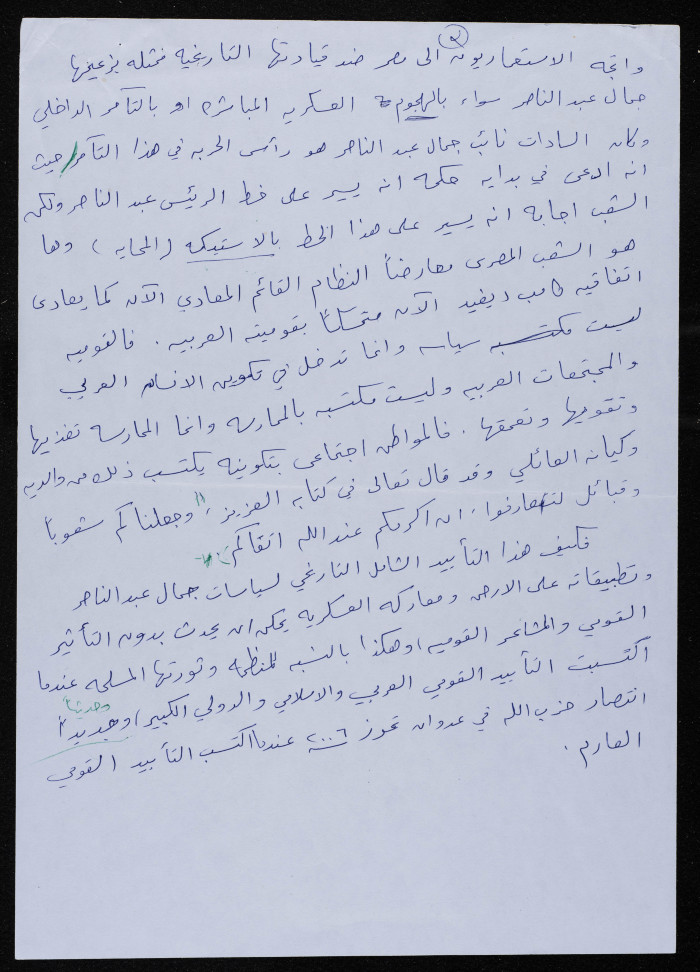 ٣
واتجه الاستعماريون الى مصر ضد قيادتها التاريخيه ممثله بزعيمها
جمال عبد الناصر سواء بالهجوم العسكريه المباشره او بالتآمر الداخلي
وكان السادات نائب جمال عبد الناصر هو رأس الحربه في هذا التآمر حيث
انه ادعى في بدايه حكمه انه يسير على خط الرئيس عبد الناصر ولكن
الشعب اجابه انه يسير على هذا الخط بالاستيكه (المحايه) وها
هو الشعب المصرى معارضاً النظام القائم المعادي الآن كما يعادى
اتفاقيه كامب ديفيد الآن متمسكاً بقوميته العربيه. فالقوميه
ليست مكتسبه سياسه وانما تدخل في تكوين الانسان العربي
والمجتمعات العربيه وليست مكتسبه بالممارسه وانما الممارسه تغذيها
وتقويها وتعمقها. فالمواطن اجتماعى بتكوينه يكتسب ذلك من والديه
وكيانه العائلي وقد قال تعالى في كتابه العزيز: "وجعلناكم شعوباً
وقبائل لتعارفوا، ان اكرمكم عند الله اتقاكم".
فكيف هذا التأييد الشامل التاريخي لسياسات جمال عبد الناصر
وتطبيقاته على الارض ومعاركه العسكريه يمكن ان يحدث بدون التأثير
القومي والمشاعر القوميه، وهكذا بالنسبه للمنظمه وثورتها المسلحه عندما
اكتسبت التأييد القومي العربي والاسلامي والدولي الكبير، وجديداً
وحديثاً
انتصار حزب الله في عدوان تموز ٢٠٠٦ عندما اكتسب التأييد القومي
العارم.